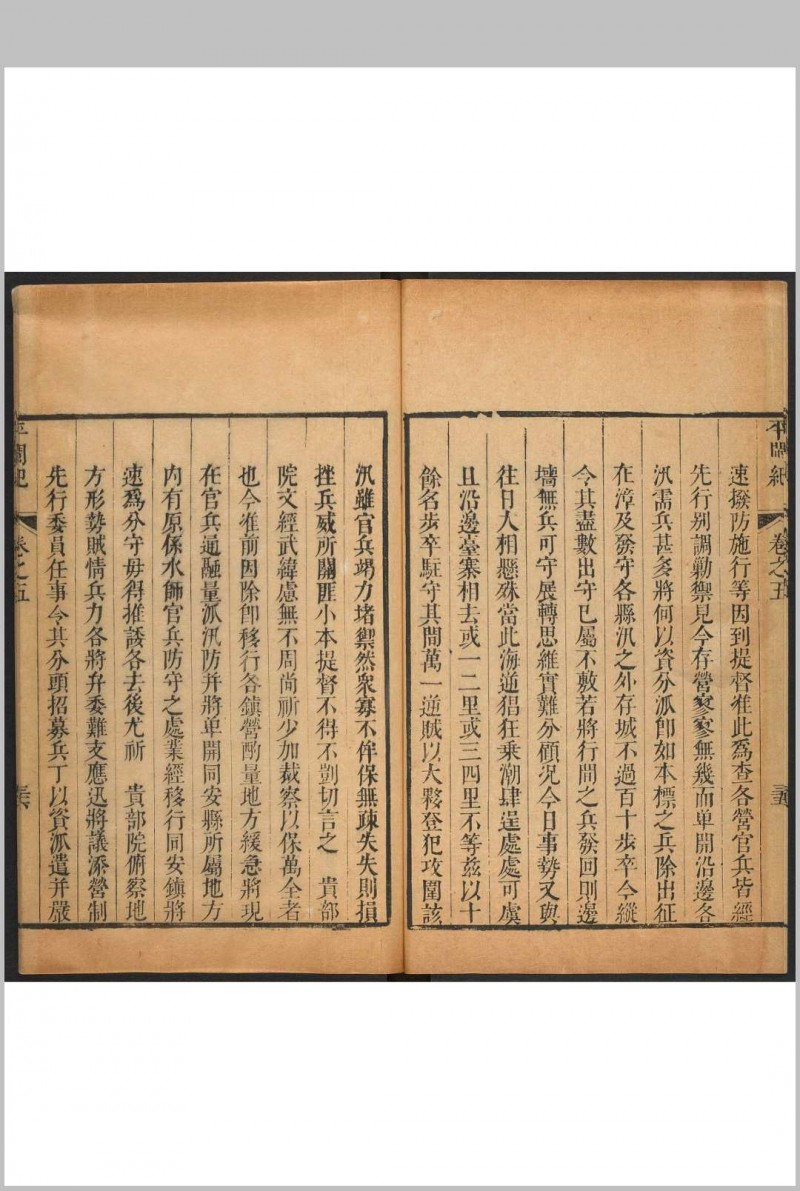 平閩紀
卷之五
三五
速撥防施行等因到提督准此爲查各營官兵皆經
先行別調勦禦見今存營寥寥無幾而单開沿邊各
汛需兵甚多將何以資分派卽如本標之兵除出征
在漳及發守各縣汛之外存城不過百十步卒今縱
令其盡數出守已屬不敷若將行間之兵發回則邊
墻無兵可守展轉思維實難分碩况今日事勢又與
往日大相懸殊當此海逆猖狂乘潮肆逞處處可虞
且沿邊臺寨相去或一二里或三四里不等兹以十
餘名步卒駐守其間萬一逆賊以大夥登犯攻圍該
汛雖官兵竭力堵禦然衆寡不侔保無疎失失則損
挫兵威所關匪小本提督不得不剴切言之 貴部
院文經武緯慮無不周尚祈少加裁察以保萬全者
也今准前因除卽移行各鎮營酌量地方緩急將現
在官兵通融量派汛防并將单開同安縣所屬地方
内有原係水師官兵防守之處業經移行同安鎮將
速爲分守毋得推諉各去後尤祈 貴部院俯察地
方形勢賊情兵力各將弁委難支應迅將議添營制
先行委員任事令其分頭招募兵丁以資派遣并嚴
平閩紀
卷之五
三六